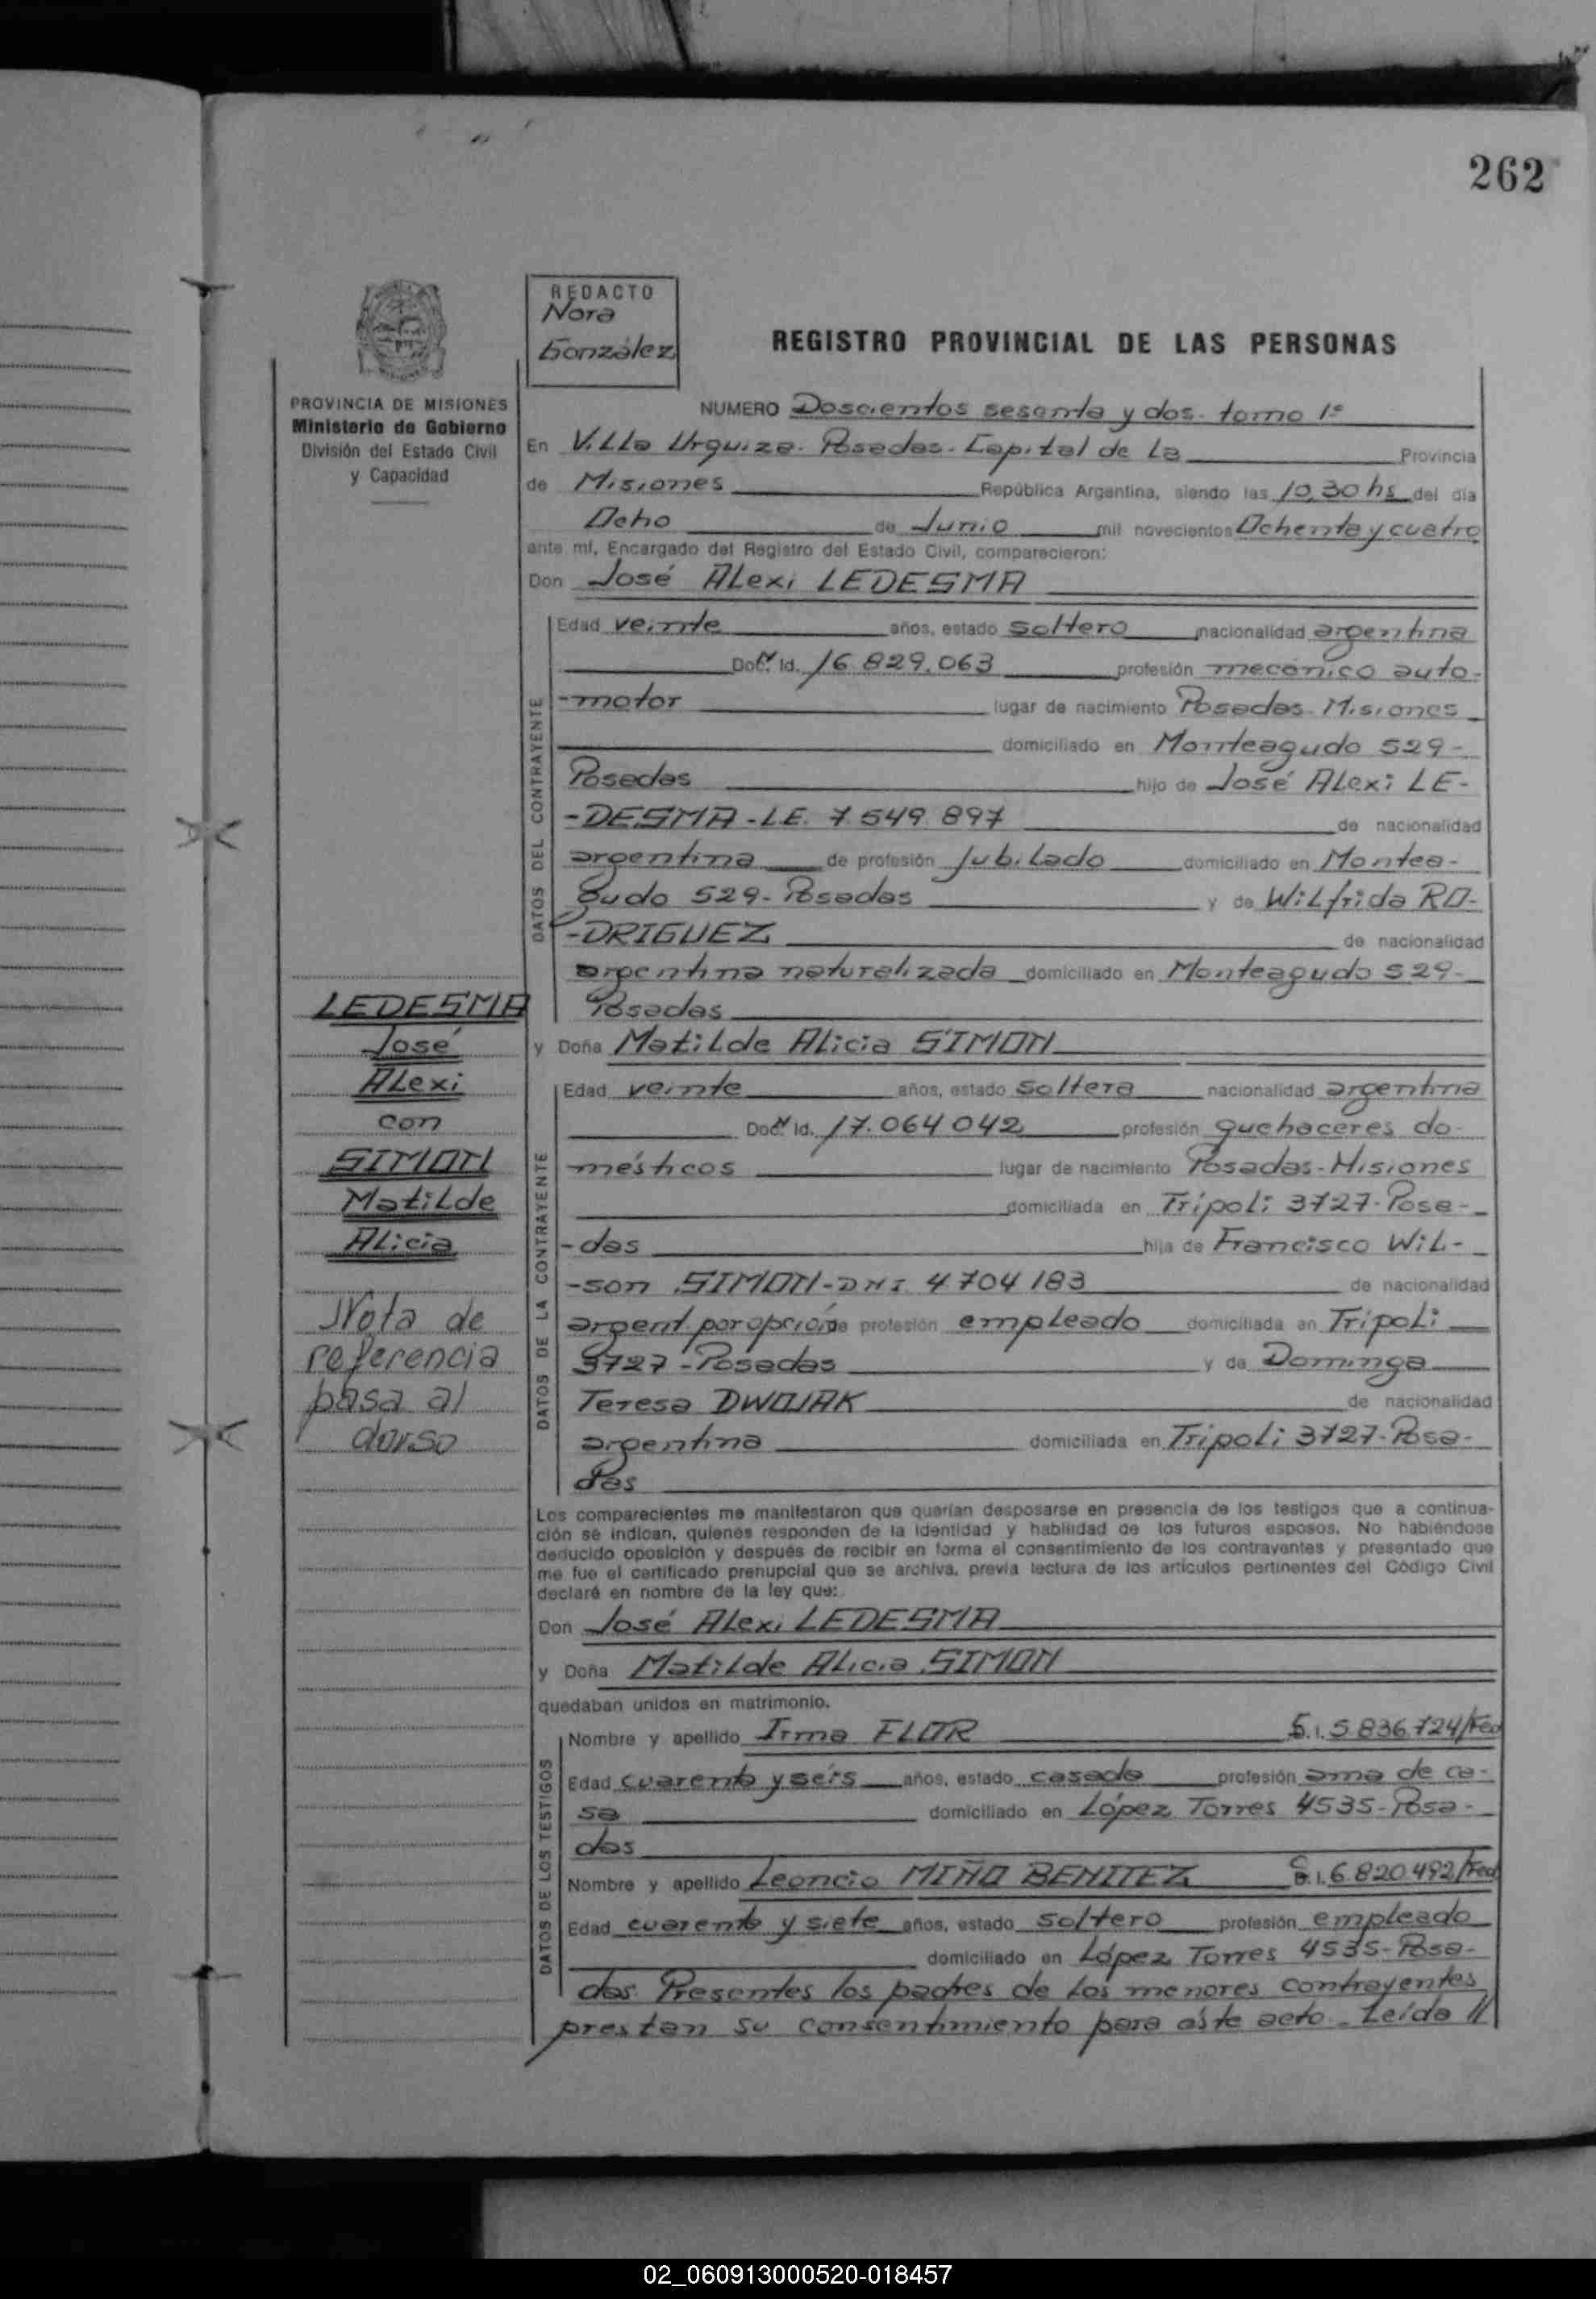 262
REDACTO
Nora
González
REGISTRO PROVINCIAL DE LAS PERSONAS
PROVINCIA DE MISIONES
Ministerio de Gobierno
División del Estado Civil
y Capacidad
NUMERO Doscientos sesenta y dos. tomo 1º
En Villa Urquiza. Posadas. Capital de La Provincia
de Misiones República Argentina, siendo las 10,30 hs del día
Ocho de Junio mil novecientos Ochenta y cuatro
ante mí, Encargado del Registro del Estado Civil, comparecieron:
Don José ALexi LEDESMA
DATOS DEL CONTRAYENTE
Edad veinte años, estado soltero nacionalidad argentina
Doc. Id. 16.829.063 profesión mecánico auto-
-motor lugar de nacimiento Posadas. Misiones
domiciliado en Monteagudo 529-
Posadas hijo de José ALexi LE-
-DESMA - LE. 7.549.897 de nacionalidad
argentina de profesión Jubilado domiciliado en Montea-
gudo 529- Posadas y de WiLfrida RO-
-DRIGUEZ de nacionalidad
argentina naturalizada domiciliado en Monteagudo 529-
Posadas
LEDESMA
José
ALexi
con
SIMON
MatiLde
ALicia
Nota de
referencia
pasa al
dorso
y Doña MatiLde ALicia SIMON
DATOS DE LA CONTRAYENTE
Edad veinte años, estado soltera nacionalidad argentina
Doc. Id. 17.064.042 profesión quehaceres do-
mésticos lugar de nacimiento Posadas-Misiones
domiciliada en TripoLi 3727-Posa-
-das hija de Francisco WiL-
-son SIMON-DNI 4.704.183 de nacionalidad
argent. por opción de profesión empleado domiciliada en TripoLi
3727-Posadas y de Dominga
Teresa DWOJAK de nacionalidad
argentina domiciliada en TripoLi 3727-Posa-
das
Los comparecientes me manifestaron que querían desposarse en presencia de los testigos que a continua-
ción se indican, quienes responden de la identidad y habilidad de los futuros esposos. No habiéndose
deducido oposición y después de recibir en forma el consentimiento de los contrayentes y presentado que
me fue el certificado prenupcial que se archiva, previa lectura de los artículos pertinentes del Código Civil
declaré en nombre de la ley que:
Don José ALexi LEDESMA
y Doña MatiLde ALicia SIMON
quedaban unidos en matrimonio.
DATOS DE LOS TESTIGOS
Nombre y apellido Irma FLOR C.I. 5.836.724/Fed
Edad cuarenta y seis años, estado casada profesión ama de ca-
sa domiciliado en López Torres 4535-Posa-
das
Nombre y apellido Leoncio MIÑO BENITEZ C.I. 6.820.492/Fed
Edad cuarenta y siete años, estado soltero profesión empleado
domiciliado en López Torres 4535-Posa-
das. Presentes los padres de los menores contrayentes
prestan su consentimiento para éste acto. Leída //
02_060913000520-018457